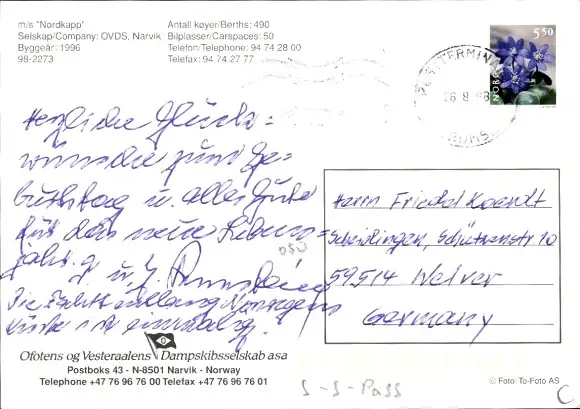 m/s "Nordkapp"
Selskap/Company: OVDS, Narvik
Byggeår: 1996
98-2273
Antall køyer/Berths: 490
Bilplasser/Carspaces: 50
Telefon/Telephone: 94 74 28 00
Telefax: 94 74 27 77
5,50
NORGE
POSTTERMINAL
26 8 98
Herzliche Glück=
wünsche zum Ge-
burtstag u. alles Gute
für das neue Lebens=
jahr.
Die Fahrt entlang Norwegens
Küste ist einmalig.
Herrn
Scheidingen, Schützenstr 10
59514 Welver
Germany
Ofotens og Vesteraalens Dampskibsselskab asa
Postboks 43 - N-8501 Narvik - Norway
Telephone +47 76 96 76 00 Telefax +47 76 96 76 01
© Foto: To-Foto AS
S-S-Pass
C